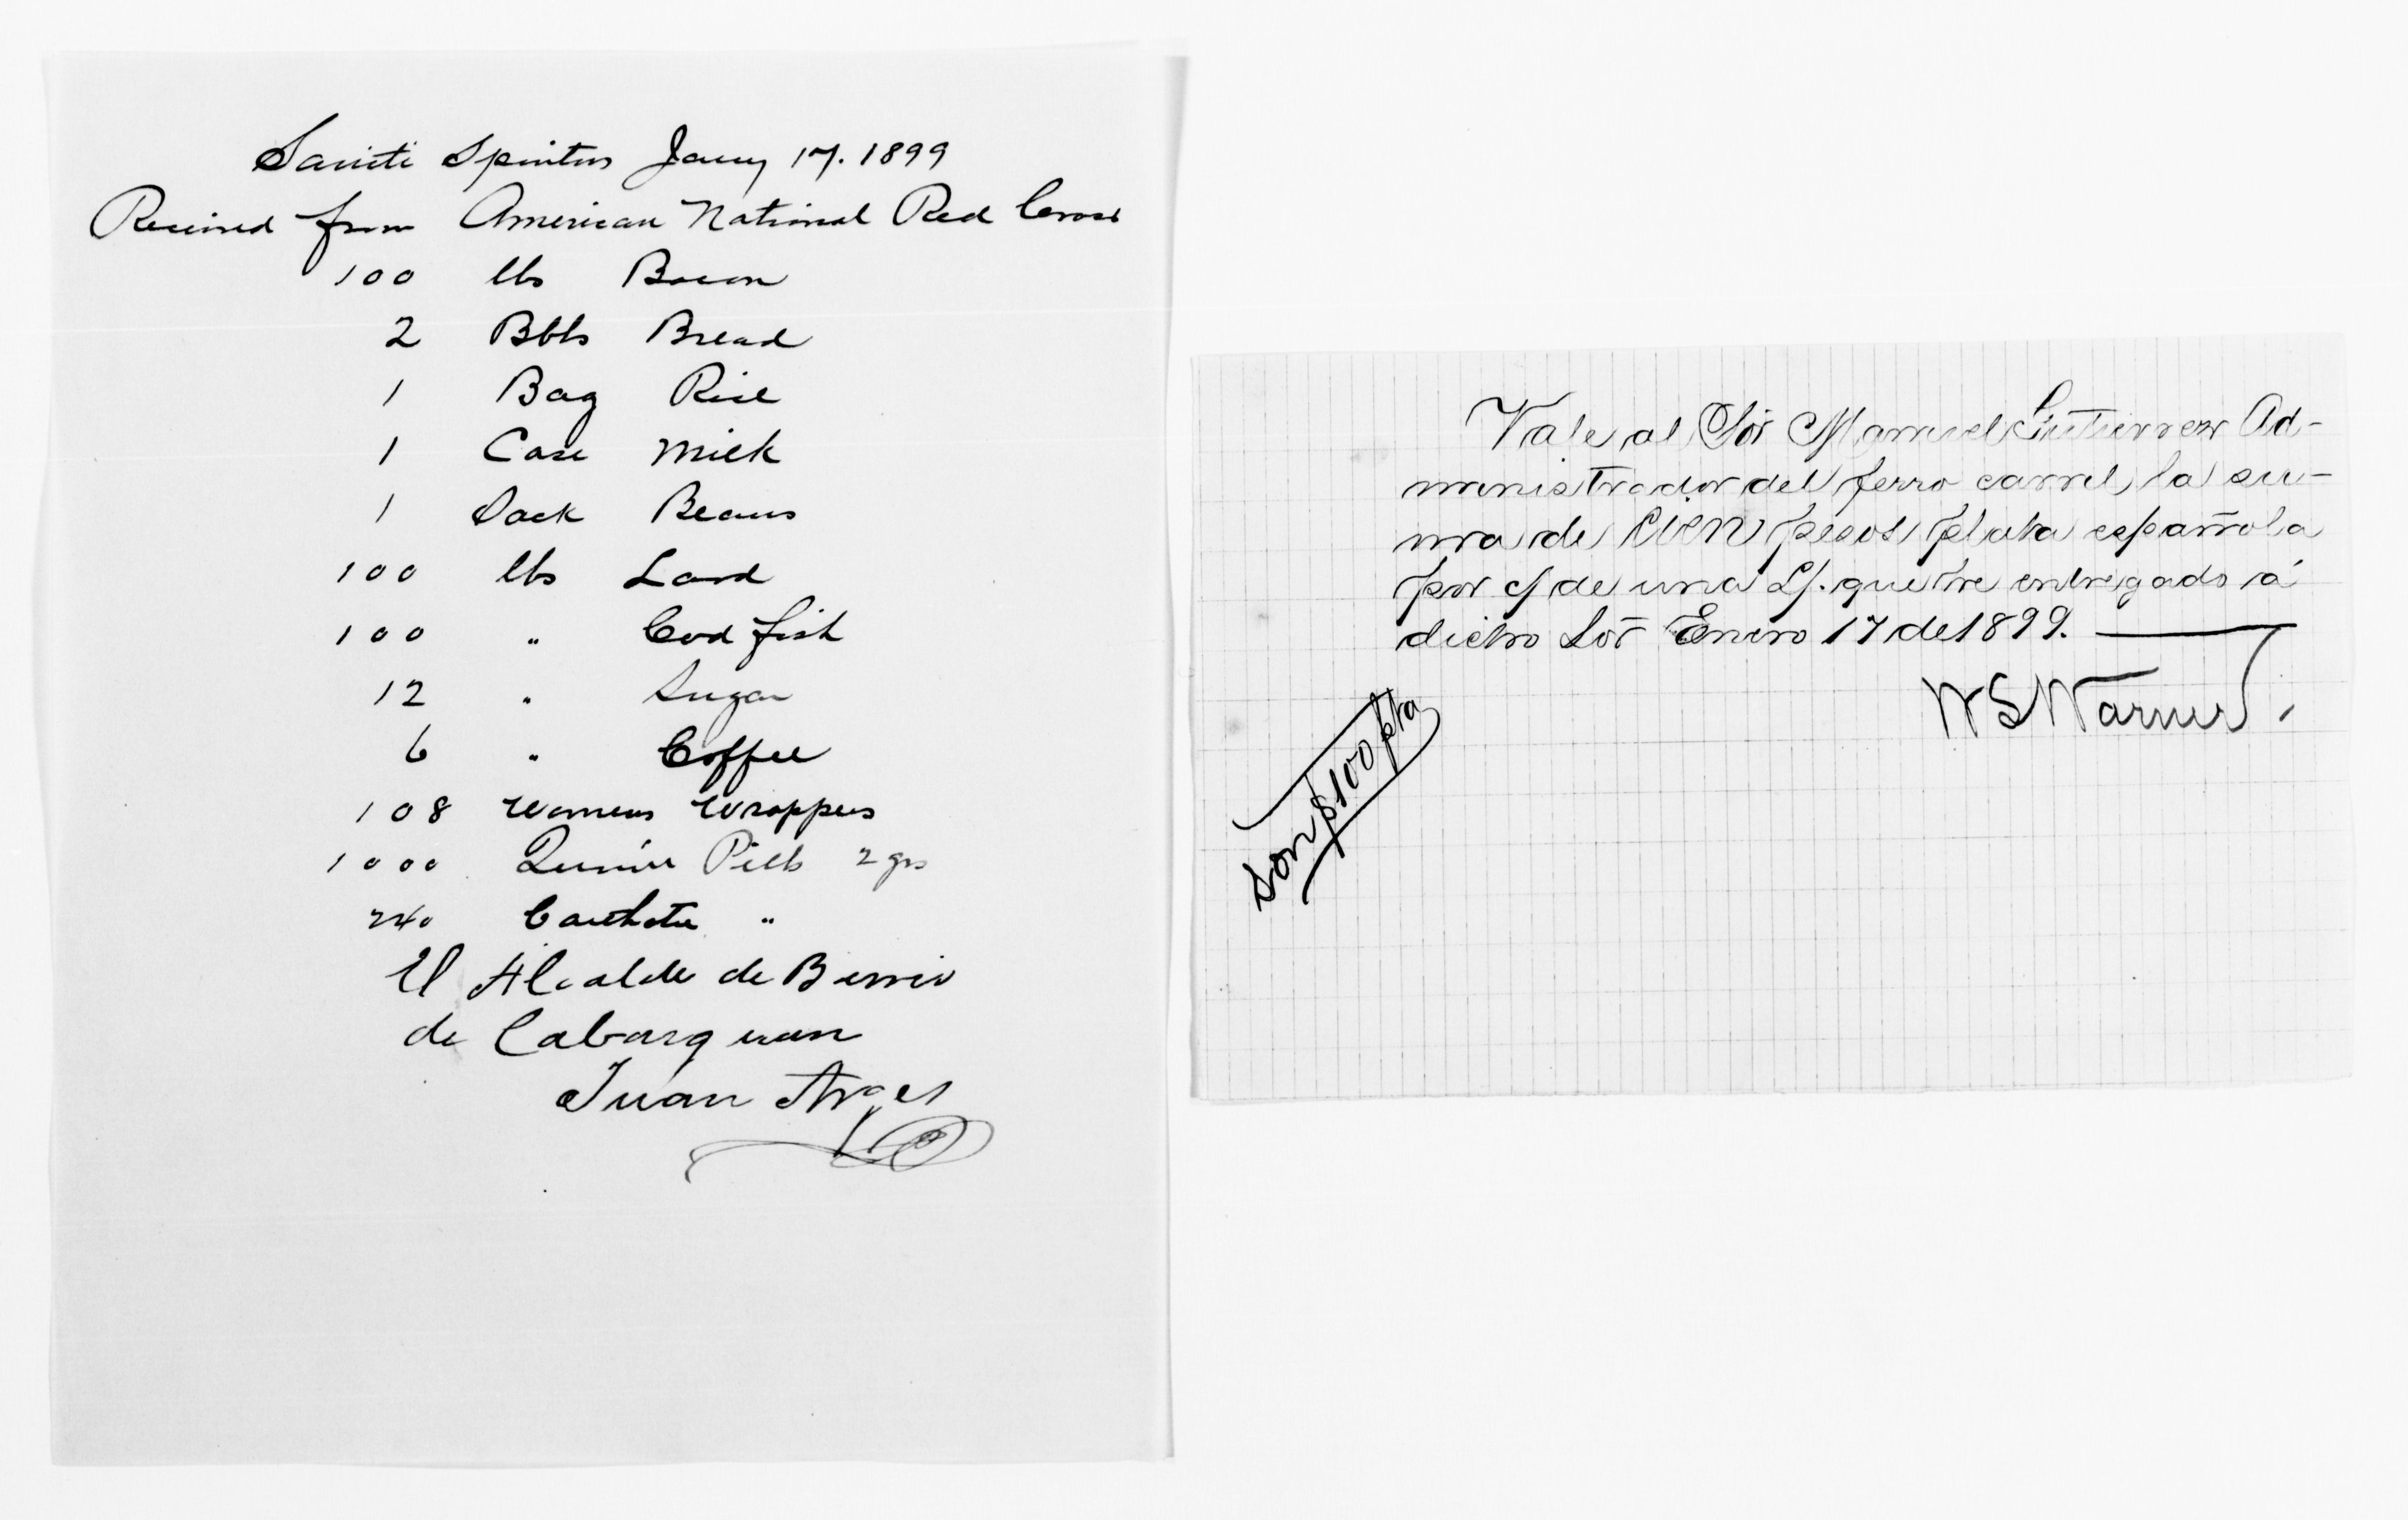 Sancti Spiritus Jany 17. 1899
Received from American National Red Cross
100 lbs Bacon
2 Bbls Bread
1 Bag Rice
1 Case Milk
1 Sack Beans
100 lbs Lard
100 " Cod fish
12 " Sugar
6 " Coffee
108 Womens Wrappers
1000 Quinine Pills 2 grs
240 "
El Alcalde de Barrio
de Cabarguan
Juan
Vale al Sor Manuel Gutierrez Ad-
ministrador del ferro carril, la su-
ma de CIEN pesos plata española
por c/ de una L/. que he entregado á
dicho Sor Enero 17 de 1899.
W S Warner
Son $100 pta